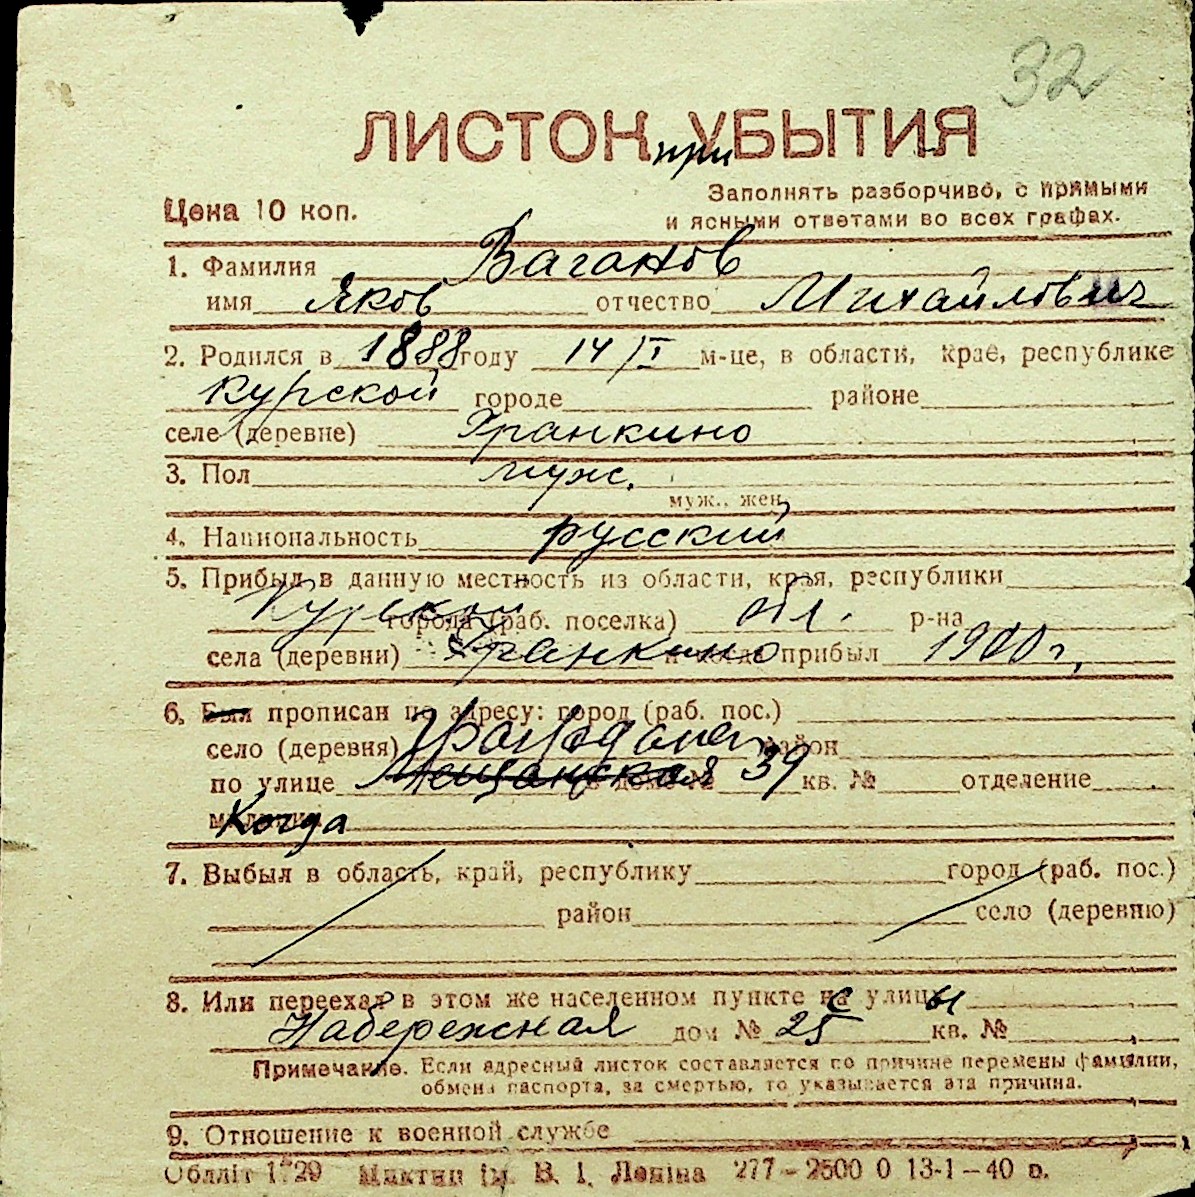 32
ЛИСТОК УБЫТИЯ
при
Цена 10 коп.
Заполнять разборчиво, с прямыми
и ясными ответами во всех графах.
1. Фамилия Ваганов
имя Яков отчество Михайлович
2. Родился в 1888 году 14/I м-це, в области, крае, республике
Курской городе районе
селе (деревне) Гранкино
3. Пол муж.
муж., жен.
4. Национальность русский
5. Прибыл в данную местность из области, края, республики
Курской города (раб. поселка) обл. р-на
села (деревни) Гранкино и когда прибыл 1900 г.
6. Был прописан по адресу: город (раб. пос.)
село (деревня) район
по улице Мещанская в доме № 39 кв. № отделение
Когда
7. Выбыл в область, край, республику город (раб. пос.)
район село (деревню)
8. Или переехал в этом же населенном пункте с улицы
Набережная дом № 25 кв. №
Примечание. Если адресный листок составляется по причине перемены фамилии,
обмена паспорта, за смертью, то указывается эта причина.
9. Отношение к военной службе
Обллiт 1729 iм. В. I. Ленiна 277–2500 0 13-1–40 в.